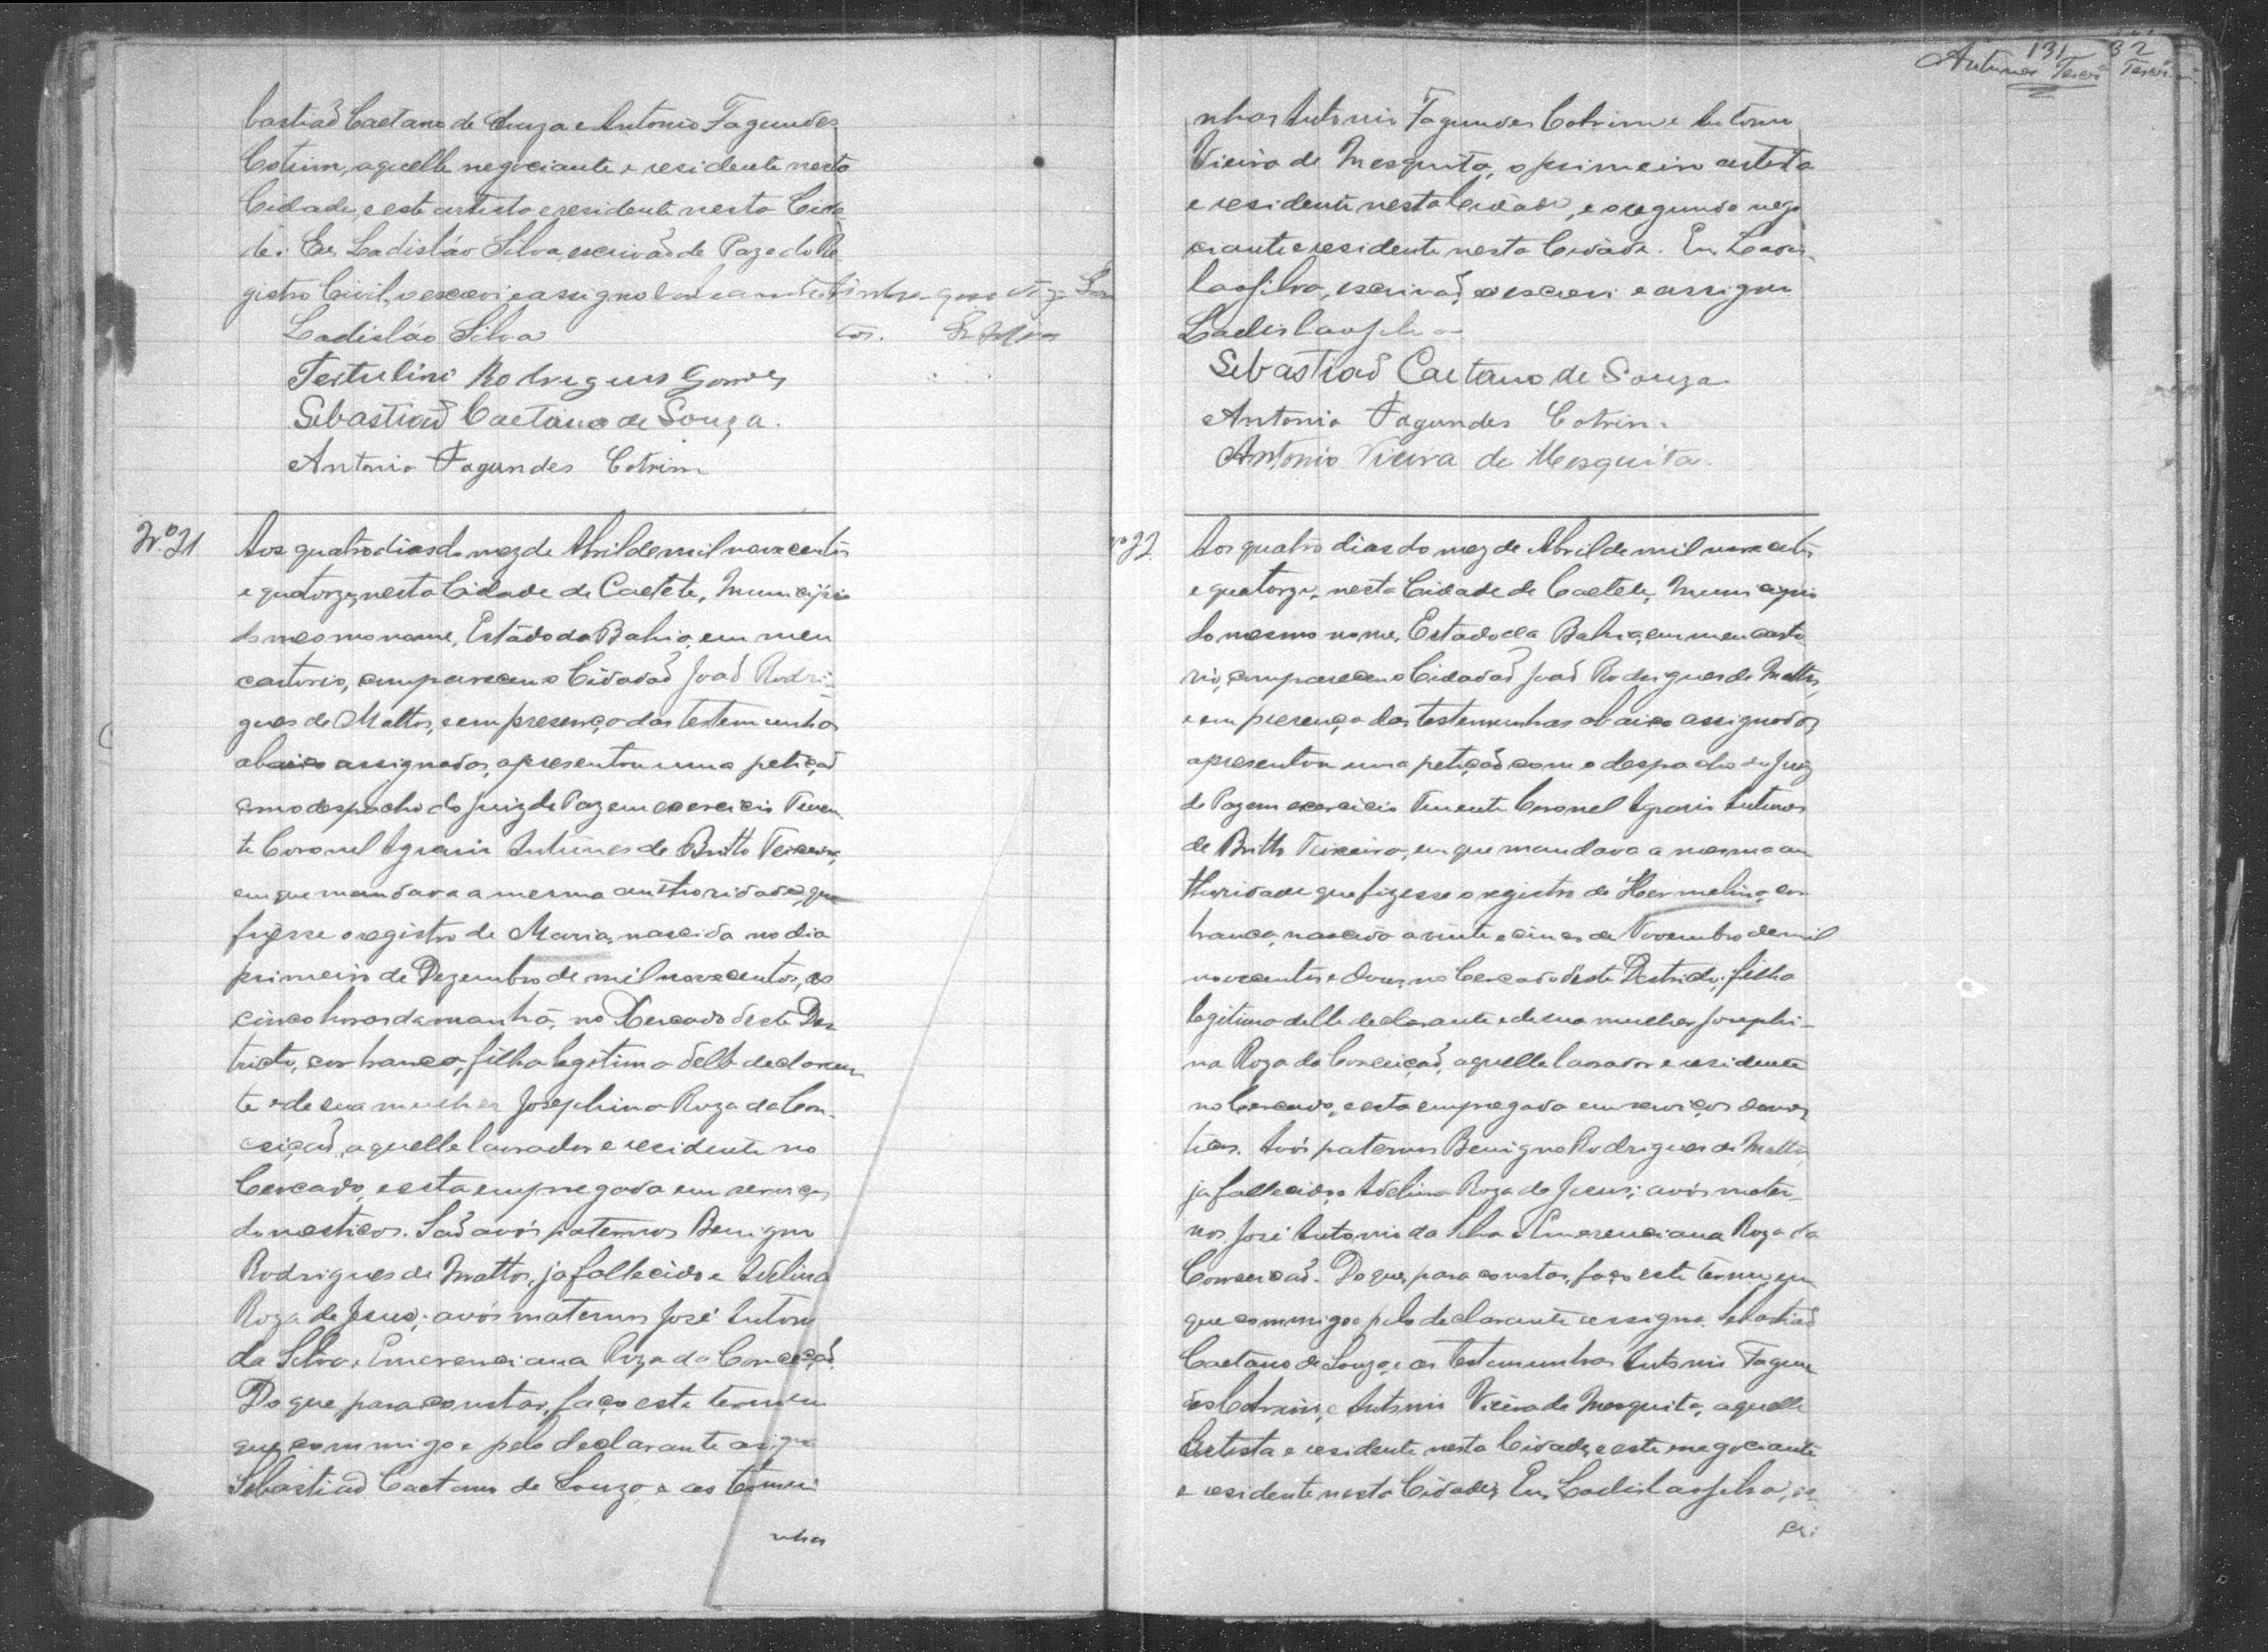 bastiaõ Caetano de Souza e Antonio Fagundes
Cotrim, aquelle negociante e residente nesta
Cidade, e este artista e residente nesta Cida
de. Eu, Ladisláo Silva, escrivaõ de Paz e do Re
gistro Civil, o escrevi e assigno
Ladisláo Silva
Rodrigues Gomes
Sebastiaõ Caetano de Souza.
Antonio Fagundes Cotrim
Nº 21
Aos quatro dias do mez de Abril de mil novecentos
e quatorze, nesta Cidade de Caeteté, Municipio
do mesmo nome, Estado da Bahia, em meu
cartorio, compareceu o Cidadaõ Joaõ Rodri-
gues de Mattos, e em presença das testemunhas
abaixo assignadas, apresentou uma petiçaõ
com o despacho do Juiz de Paz em exercicio Tenen
te Coronel Antunes de Britto Teixeira,
em que mandava a mesma authoridade, que
fizesse o registro de Maria, nascida no dia
primeiro de Dezembro de mil novecentos, as
cinco horas da manhã, no Cercado deste Dis
tricto, cor branca, filha legitima delle declaran
te e de sua mulher Josephina Roza da Con-
ceiçaõ, aquelle lavrador e residente no
Cercado, e esta empregada em serviços
domesticos. Saõ avós paternos Benigno
Rodrigues de Mattos, ja fallecido e Adelina
Roza de Jesus; avós maternos José Antonio
da Silva e Emerenciana Roza da Conceiçaõ.
Do que, para constar, faço este termo em
que commigo e pelo declarante assigna
Sebastiaõ Caetano de Souza e as testemu
nhas
131 32
Antunes Teixrª Teixrª
nhas Antonio Fagundes Cotrim e Antonio
Vieira de Mesquita, o primeiro artista
e residente nesta Cidade, e o segundo nego
ciante e residente nesta Cidade. Eu, Ladis-
lao Silva, escrivaõ, o escrevi e assigno
Ladislao Silva
Sebastiaõ Caetano de Souza
Antonio Fagundes Cotrim
Antonio Vieira de Mesquita.
Nº 22
Aos quatro dias do mez de Abril de mil novecentos
e quatorze, nesta Cidade de Caeteté, Municipio
do mesmo nome, Estado da Bahia, em meu carto
rio, compareceu o Cidadaõ Joaõ Rodrigues de Mattos,
e em presença das testemunhas abaixo assignadas
apresentou uma petiçaõ com o despacho do Juiz
de Paz em exercicio Tenente Coronel Antunes
de Britto Teixeira, em que mandava a mesma au
thoridade que fizesse o registro de Hermelina, cor
branca, nascida a vinte e cinco de Novembro de mil
novecentos e dous, no Cercado deste Districto, filha
legitima delle declarante e de sua mulher Josephi-
na Roza da Conceiçaõ, aquelle lavrador e residente
no Cercado, e esta empregada em serviços domes
ticos. Avós paternos Benigno Rodrigues de Mattos,
ja fallecido, e Adelina Roza de Jesus; avós mater-
nos José Antonio da Silva e Emerenciana Roza da
Conceiçaõ. Do que, para constar, faço este termo, em
que commigo e pelo declarante assigna Sebastiaõ
Caetano de Souza, e as testemunhas Antonio Fagun
des Cotrim, e Antonio Vieira de Mesquita, aquelle
artista e residente nesta Cidade, e este negociante
e residente nesta Cidade. Eu, Ladislao Silva, es
cri